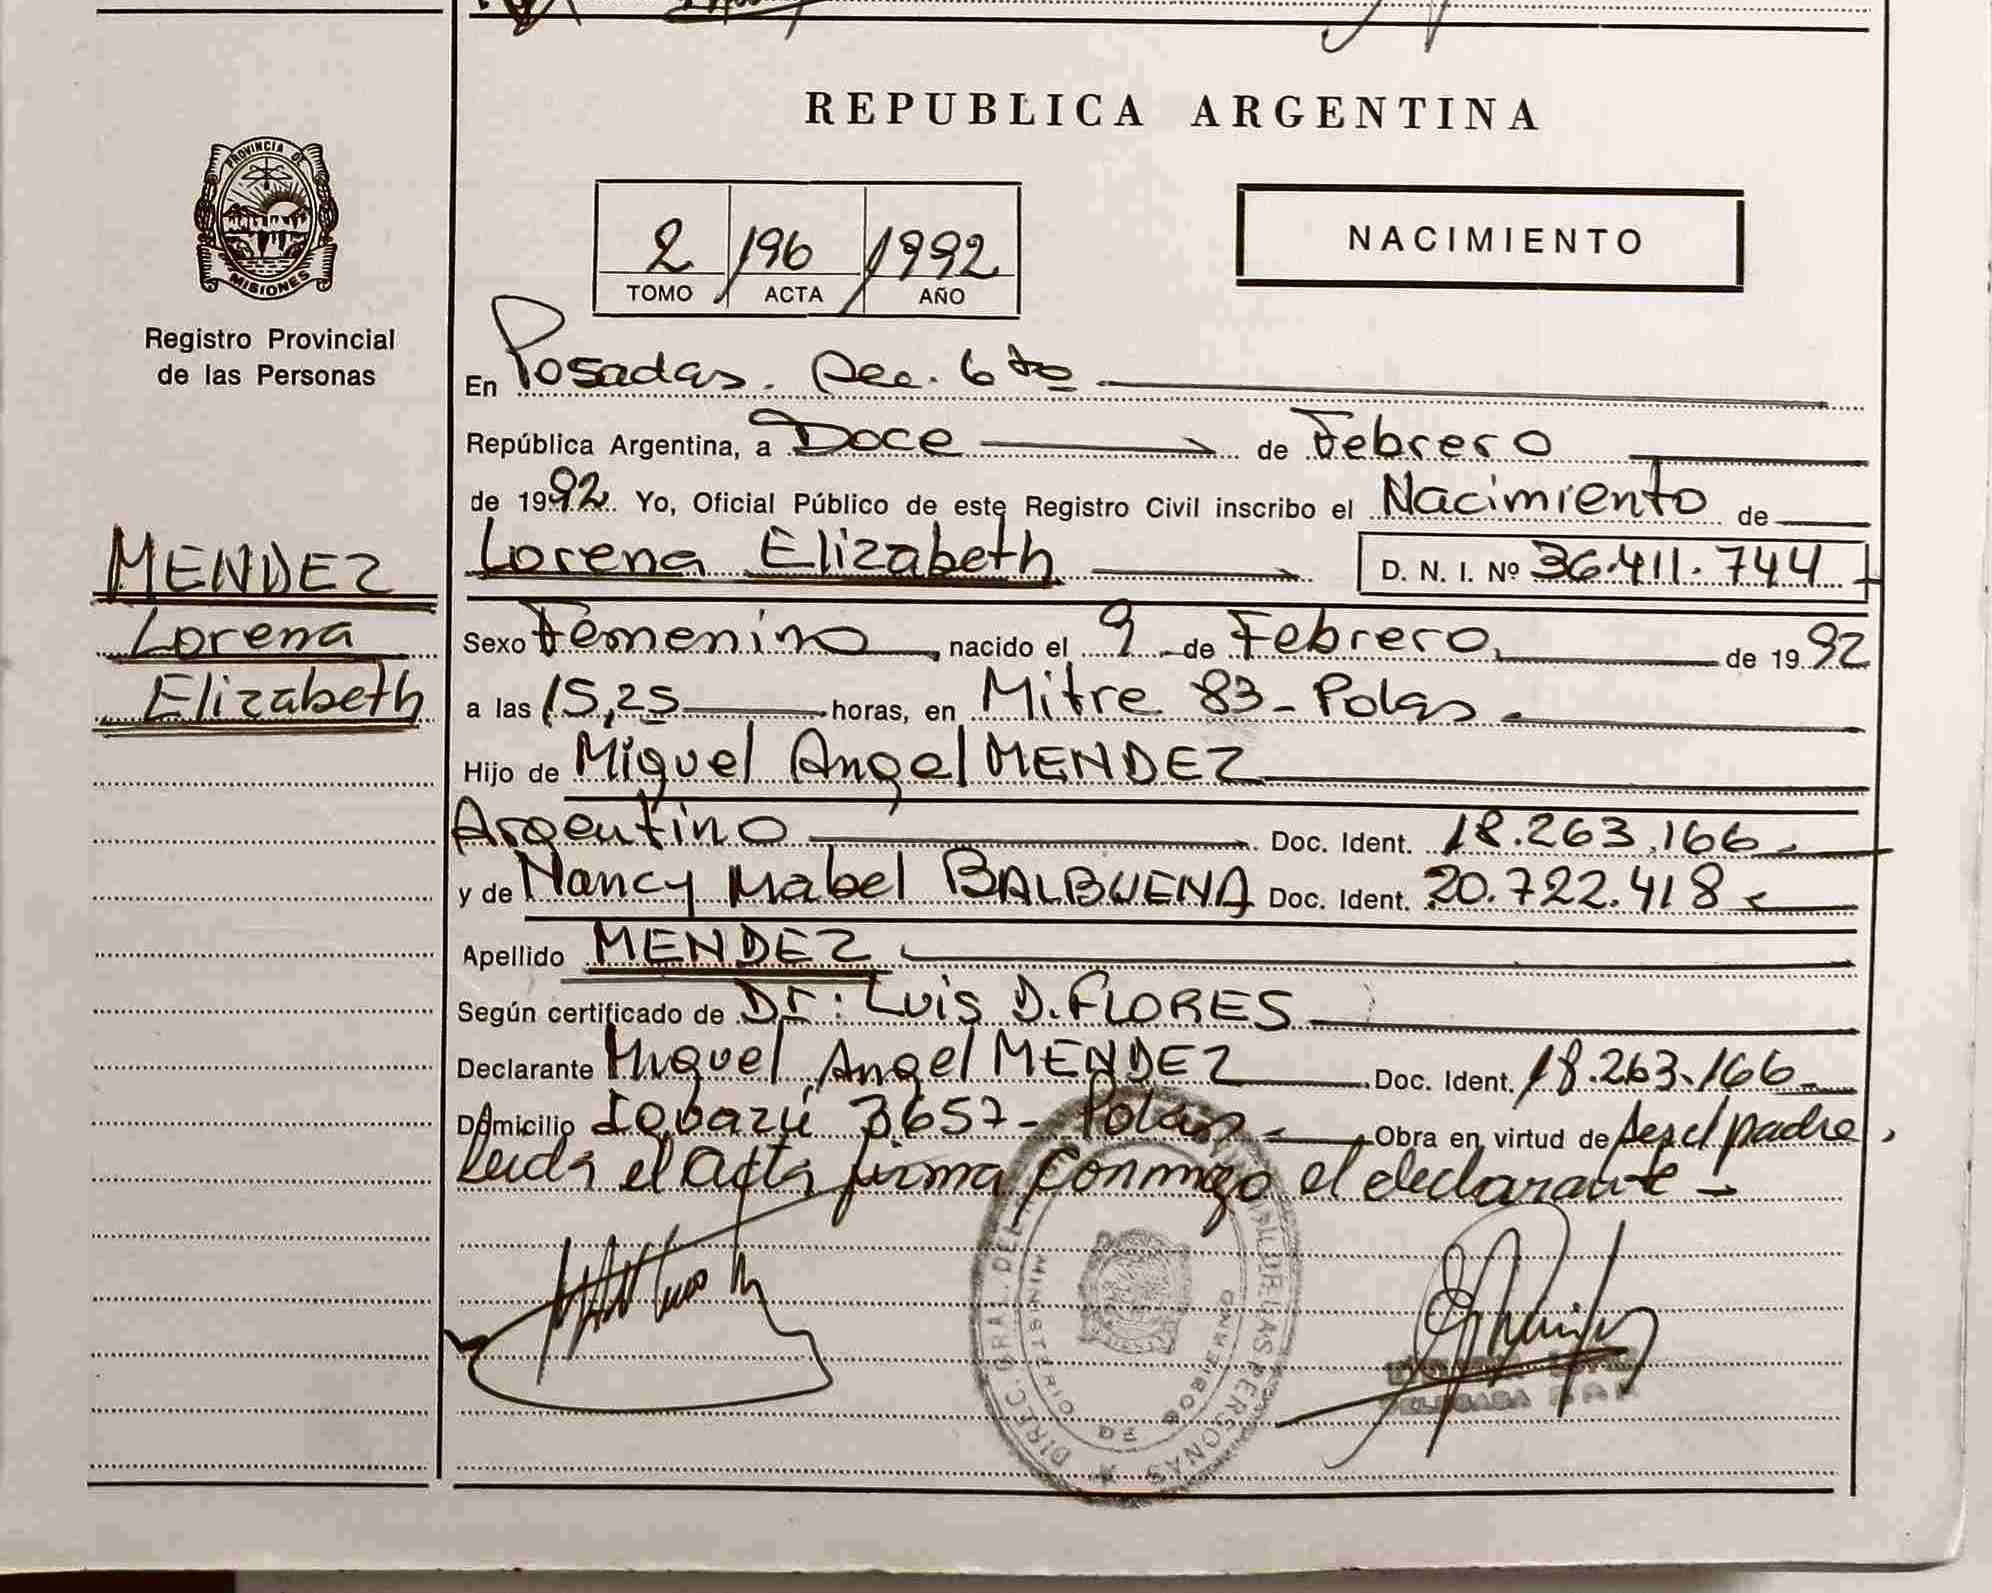 REPUBLICA ARGENTINA
PROVINCIA DE
MISIONES
Registro Provincial
de las Personas
2 196 1992
TOMO ACTA AÑO
NACIMIENTO
En Posadas. Sec. 6 to
República Argentina, a Doce de Febrero
de 1992 Yo, Oficial Público de este Registro Civil inscribo el Nacimiento de
Lorena Elizabeth D. N. I. Nº 36.411.744
MENDEZ
Lorena
Elizabeth
Sexo Femenino, nacido el 9 de Febrero, de 1992
a las 15,25 horas, en Mitre 83 - Pdas.
Hijo de Miguel Angel MENDEZ
Argentino Doc. Ident. 18.263.166
y de Nancy Mabel BALBUENA Doc. Ident. 20.722.418
Apellido MENDEZ
Según certificado de Dr: Luis D. FLORES
Declarante Miguel Angel MENDEZ Doc. Ident. 18.263.166
Domicilio 3657 - Pdas. Obra en virtud de ser el padre,
Leida el acta firma conmigo el declarante -
DIREC. GRAL. DEL DE LAS PERSONAS